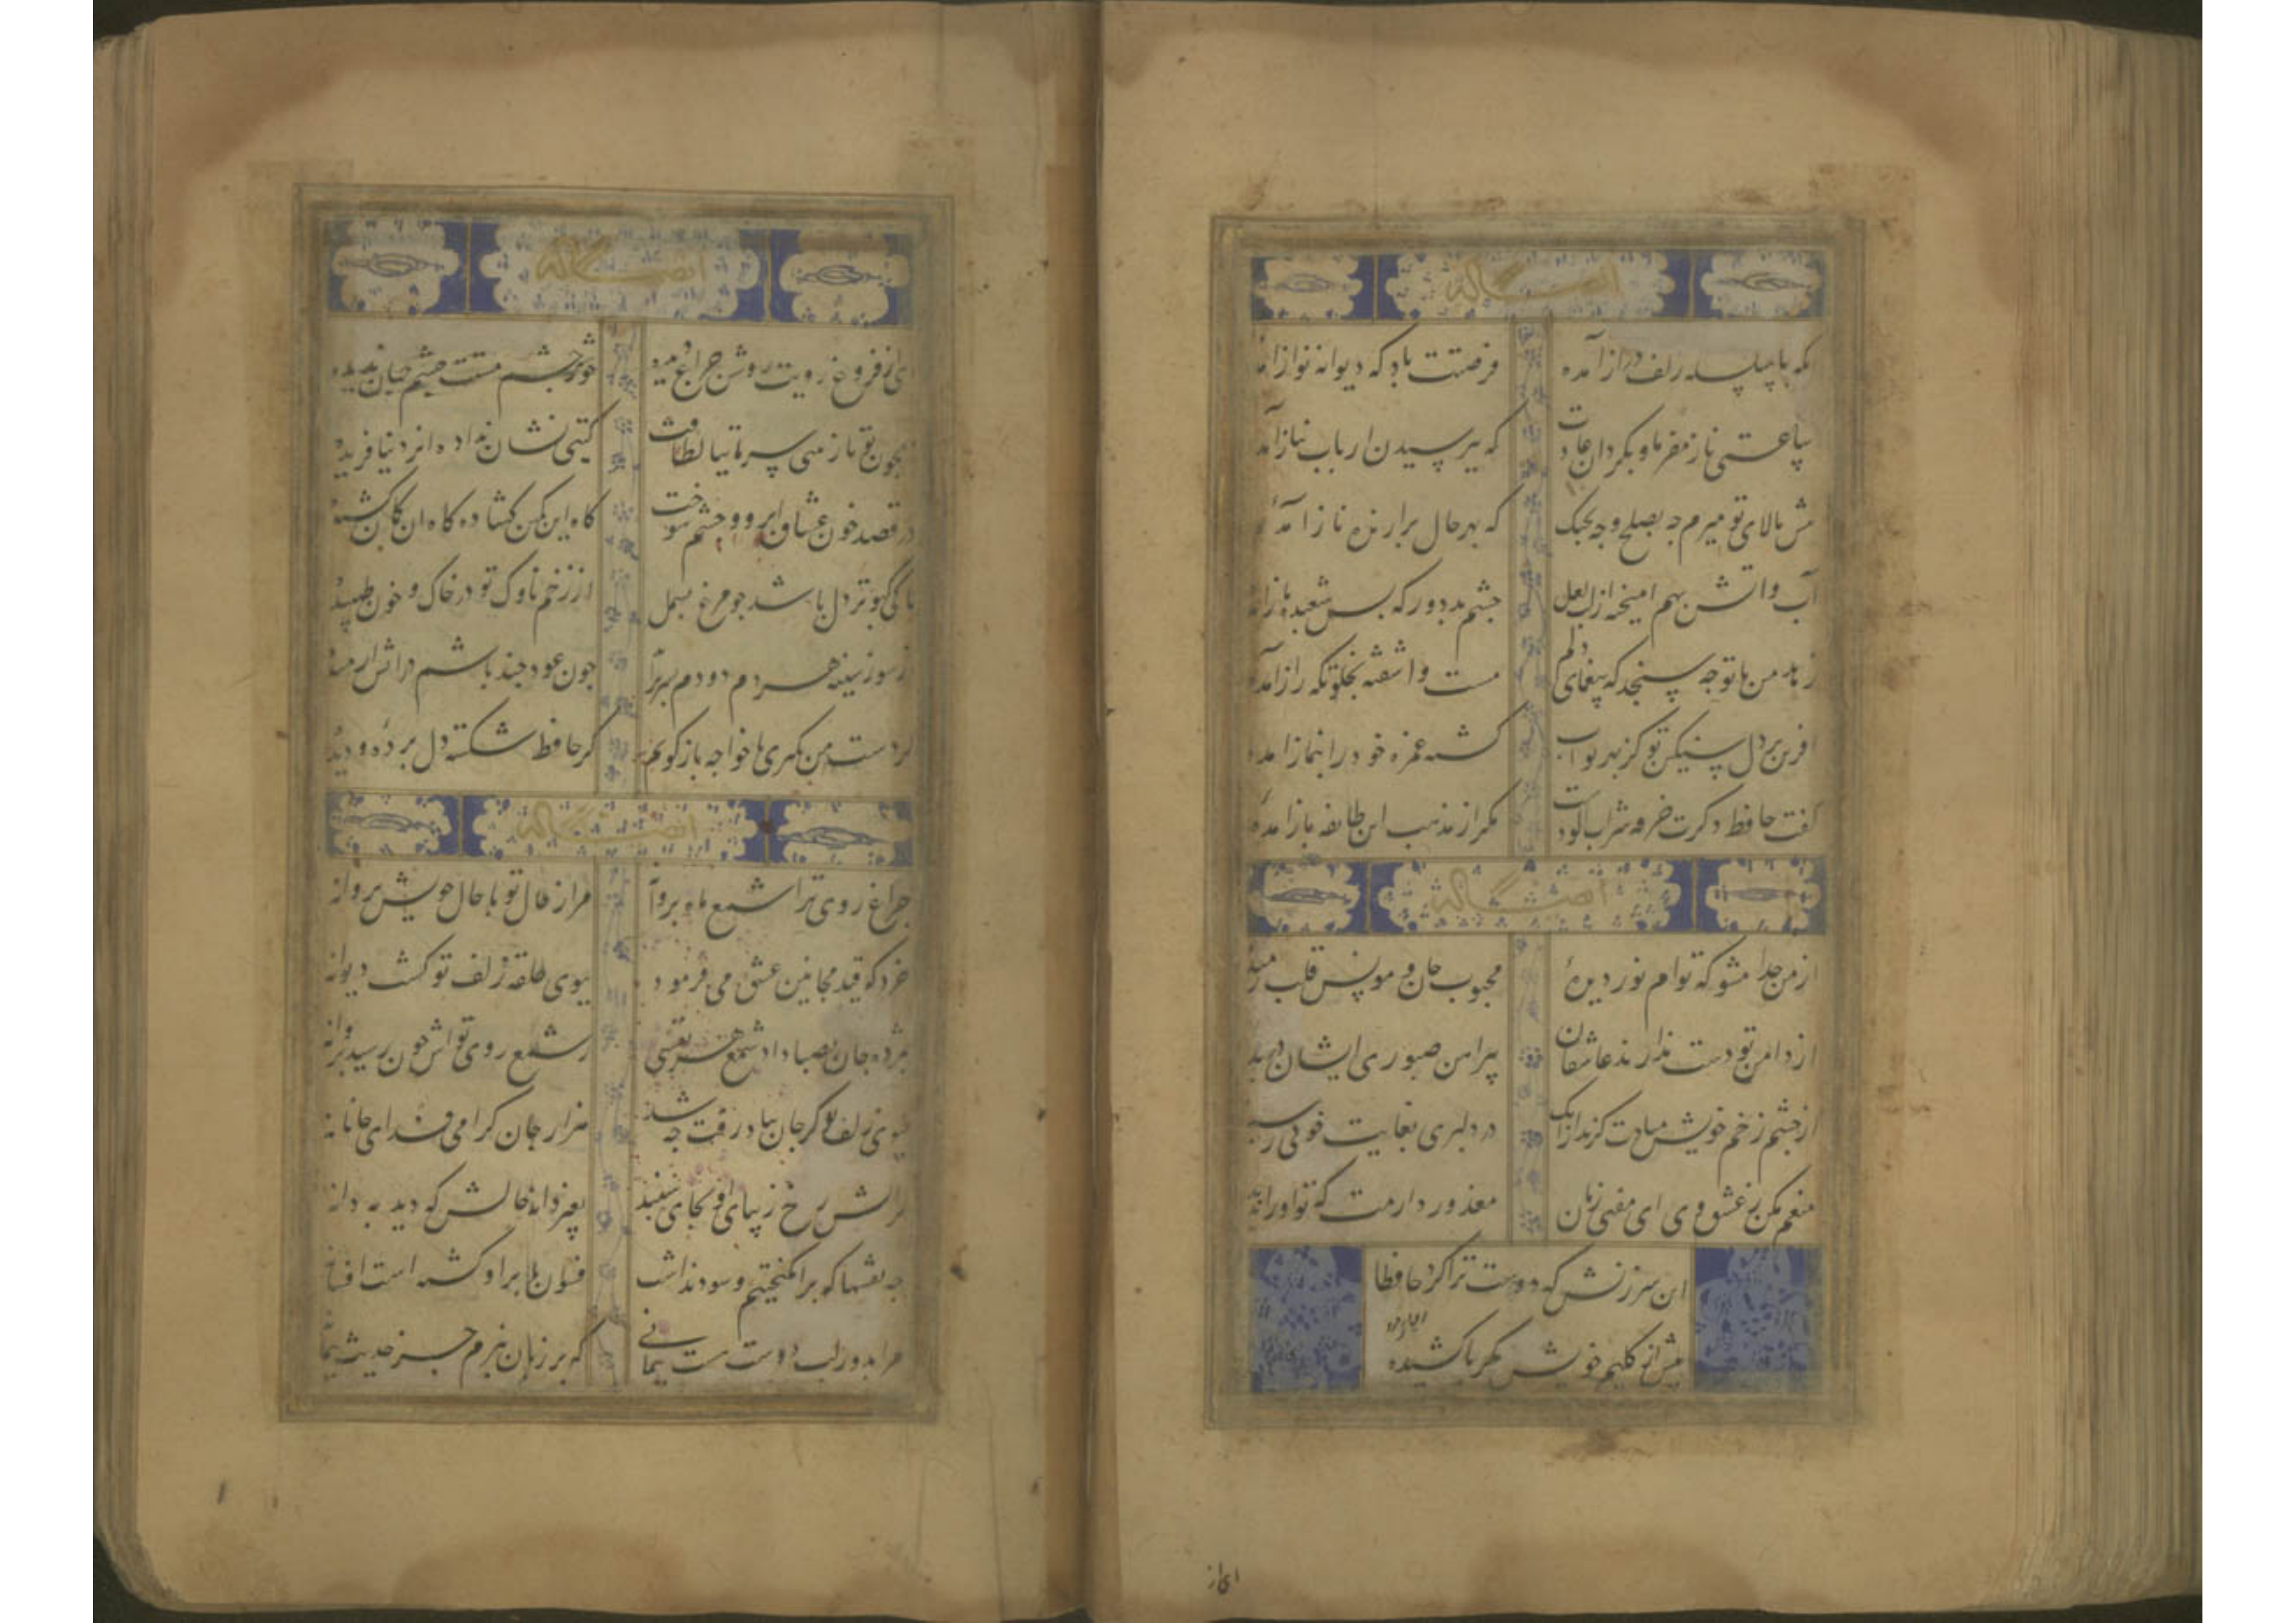 ایضاً له
که با سلسله زلف دراز آمده
فرصتت باد که دیوانه نواز آمده
ساعتی ناز مفرما و بگردان عادت
که بپرسیدن ارباب نیاز آمده
پیش بالای تو میرم چه بصلح و چه بجنک
که بهر حال برازنده ناز آمدهٔ
آب و اتش بهم امیخته از لب لعل
چشم بد دور که بس شعبده باز آمده
زهد من با تو چه سنجد که بیغمای دلم
مست و اشفته بخلوتکه راز آمده
افرین بر دل سنکین تو کز بهر ثواب
کشته غمزه خود را بنماز آمده
کفت حافظ دکرت خرقه شراب الودست
مکر از مذهب این طایفه باز آمدهٔ
ایضاً له
از من جدا مشو که توام نور دیدهٔ
محبوب جان و مونس قلب رمیدهٔ
از دامن تو دست ندارند عاشقان
پیراهن صبوری ایشان دریده
از چشم زخم خویش مبادت کزند ازانک
در دلبری بغایت خوبی رسیده
منعم مکن ز عشق وی ای مفتی زمان
معذور دارمت که تو او را ندیده
این سرزنش که دوست ترا کرد حافظا
بیش از کلیم خویش مکر پا کشیده
ای از
ایضاً له
ای از فروغ رویت روشن چراغ دیده
خوشتر ز چشم مستت چشم جهان ندیده
همچون تو نازنینی سر تا بپا لطافت
کیتی نشان نداده ایزد نیافریده
در قصد خون عشاق ابرو و چشم شوخت
کاه این کمین کشاده کاه ان کمان کشیده
تا کی کبوتر دل باشد چو مرغ بسمل
از زخم ناوک تو در خاک و خون طپیده
از سوز سینه هر دم دودم بسر براید
چون عود چند باشم در اتش ارمیده
کر دست من نکیری با خواجه باز کویم
کز حافظ شکسته دل برده و دیده
ایضاً له
چراغ روی ترا شمع ماه پروانه
مرا ز خال تو با حال خویش پروا نه
خرد که قید مجانین عشق می فرمود
ببوی حلقه زلف تو کشت دیوانه
بمژده جان بصبا داد شمع هر نفسی
ز شمع روی تواش چون رسید پروانه
ببوی زلف تو کر جان بباد رفت چه شد
هزار جان کرامی فدای جانانه
بر اتش رخ زیبای او بجای سپند
بغیر دانهٔ خالش که دید به دانه
چه نقشها که برانکیختیم و سود نداشت
فسون ما بر او کشته است افسانه
مرا بدور لب دوست هست پیمانی
که بر زبان نبرم جز حدیث پیمانه